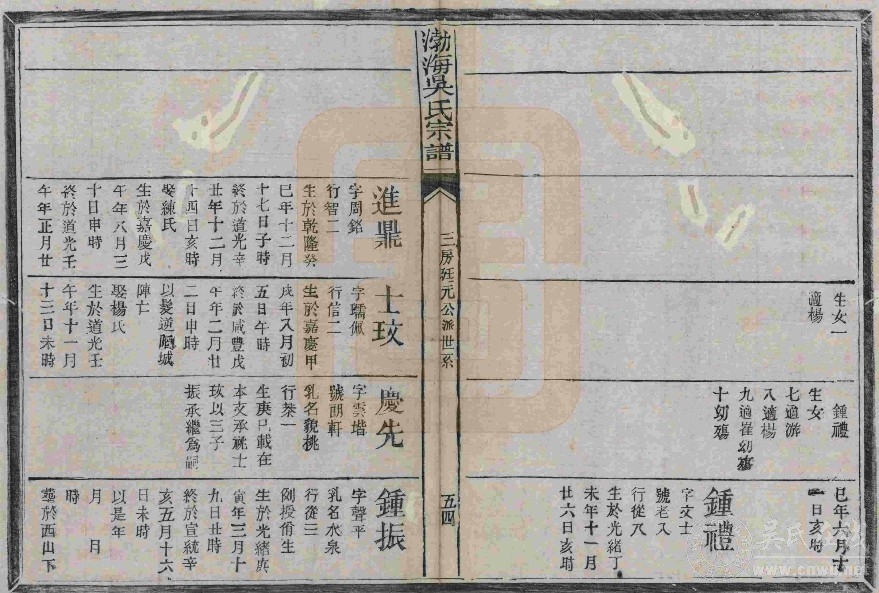 生女一
適楊
鍾禮
生女
七適游
八適楊
九適崔幼殤
十幼殤
巳年六月十
一日亥時
鍾禮
字文士
號老八
行從八
生於光緒丁
未年十一月
廿六日亥時
渤海吳氏宗譜
三房廷元公派世系
五四
進鼎
字周銘
行智二
生於乾隆癸
巳年十二月
十七日子時
終於道光辛
丑年十二月
十四日亥時
娶練氏
生於嘉慶戊
午年八月三
十日申時
終於道光壬
午年正月廿
士玟
字璚佩
行信二
生於嘉慶甲
戌年八月初
五日午時
終於咸豐戊
午年二月廿
二日申時
以髮逆陷城
陣亡
娶楊氏
生於道光壬
午年十一月
十三日未時
慶先
字雲堦
號朗軒
乳名貌挑
行荣一
生庚已載在
本支承祧士
玟以三子
振承繼爲嗣
鍾振
字聲平
乳名水泉
行從三
例授脩生
生於光緒庚
寅年三月十
九日丑時
終於宣統辛
亥五月十六
日未時
以是年
月 日
時
葬於西山下
吳氏
www.cnwu.net